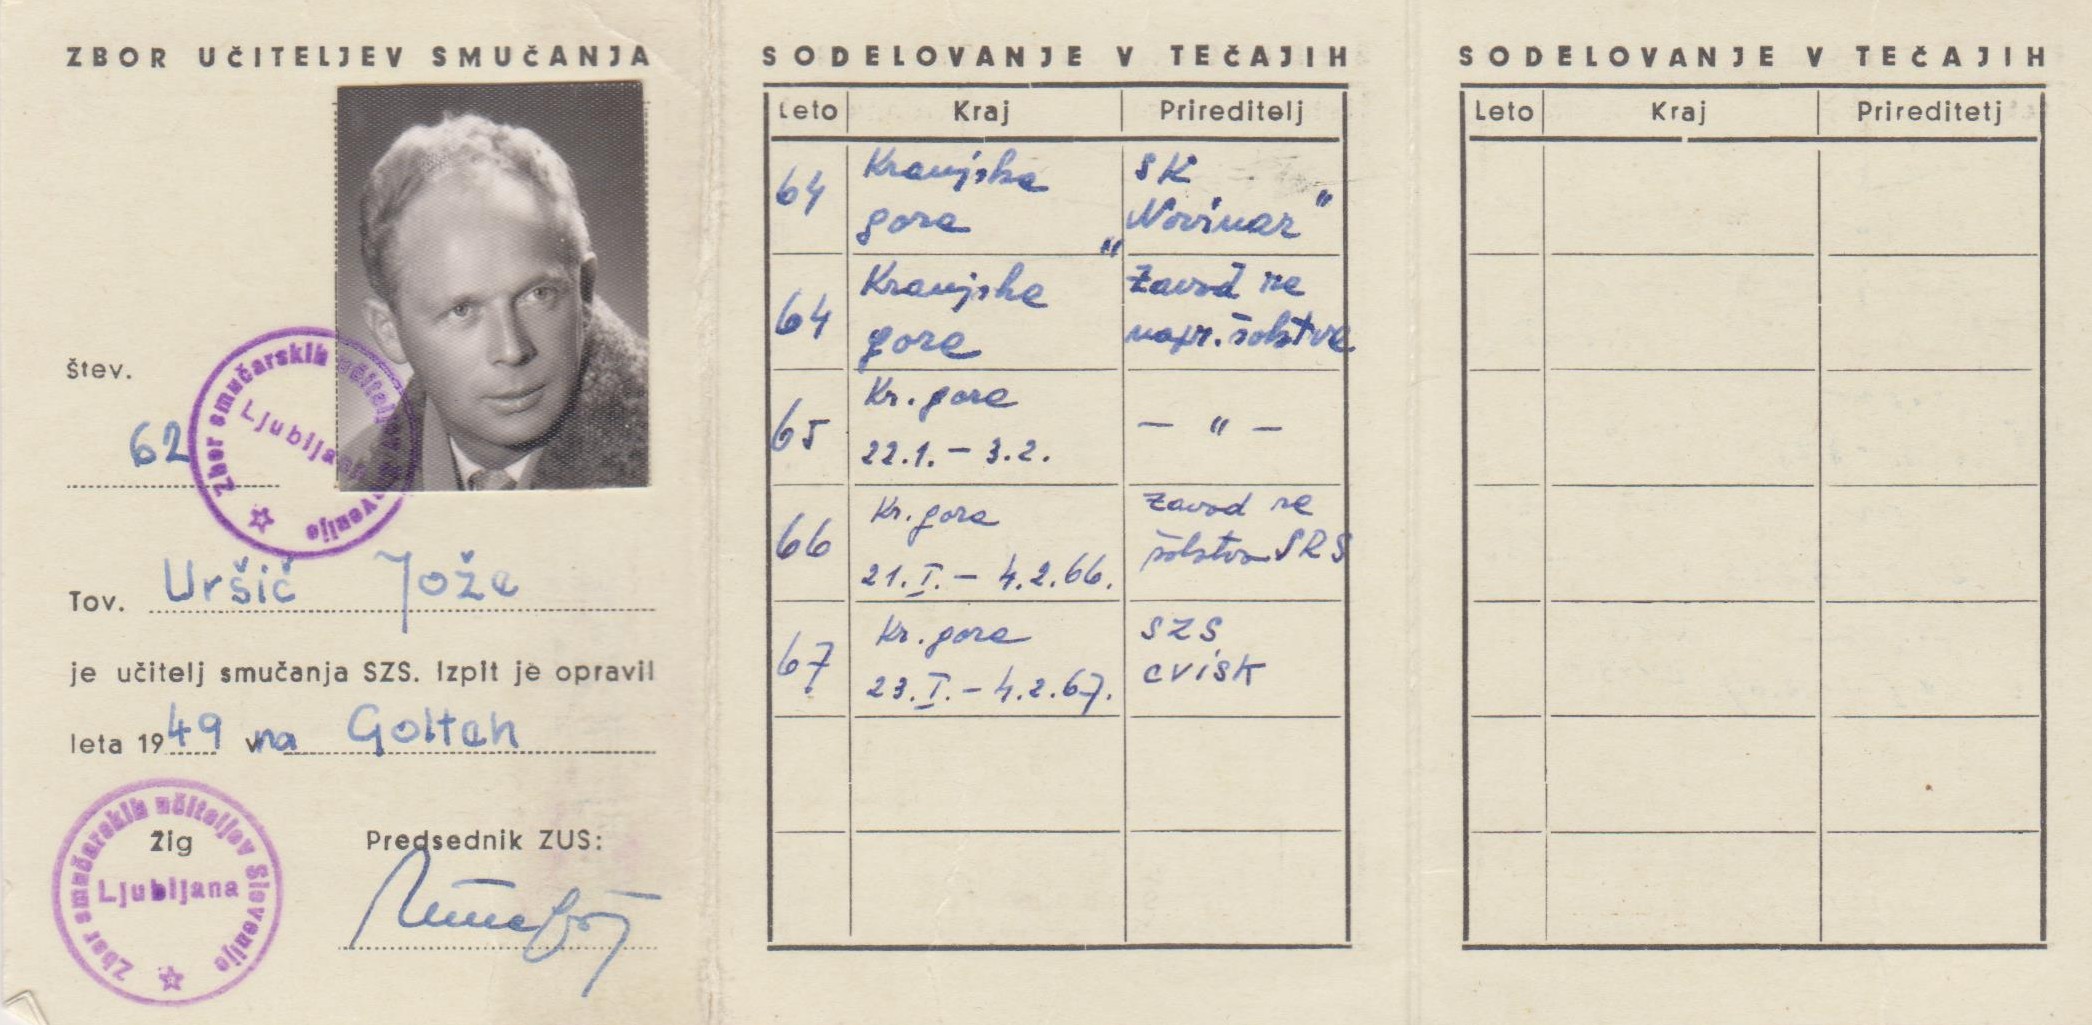 ZBOR UČITELJEV SMUČANJA
štev.
62
Zbor smučarskih učiteljev Slovenije
Ljubljana
Tov. Uršič Jože
je učitelj smučanja SZS. Izpit je opravil
leta 1949 v na Golteh
Žig
Zbor smučarskih učiteljev Slovenije
Ljubljana
Predsednik ZUS:
SODELOVANJE V TEČAJIH
Leto Kraj Prireditelj
64 Kranjska gora SK „Novinar"
64 Kranjska gora Zavod za napr. šolstva
65 Kr. gora 22.1. – 3.2. — " —
66 Kr. gora 21.I. – 4.2.66. Zavod za šolstvo SRS
67 Kr. gora 23.I. – 4.2.67. SZS CVISK
SODELOVANJE V TEČAJIH
Leto Kraj Prireditetj